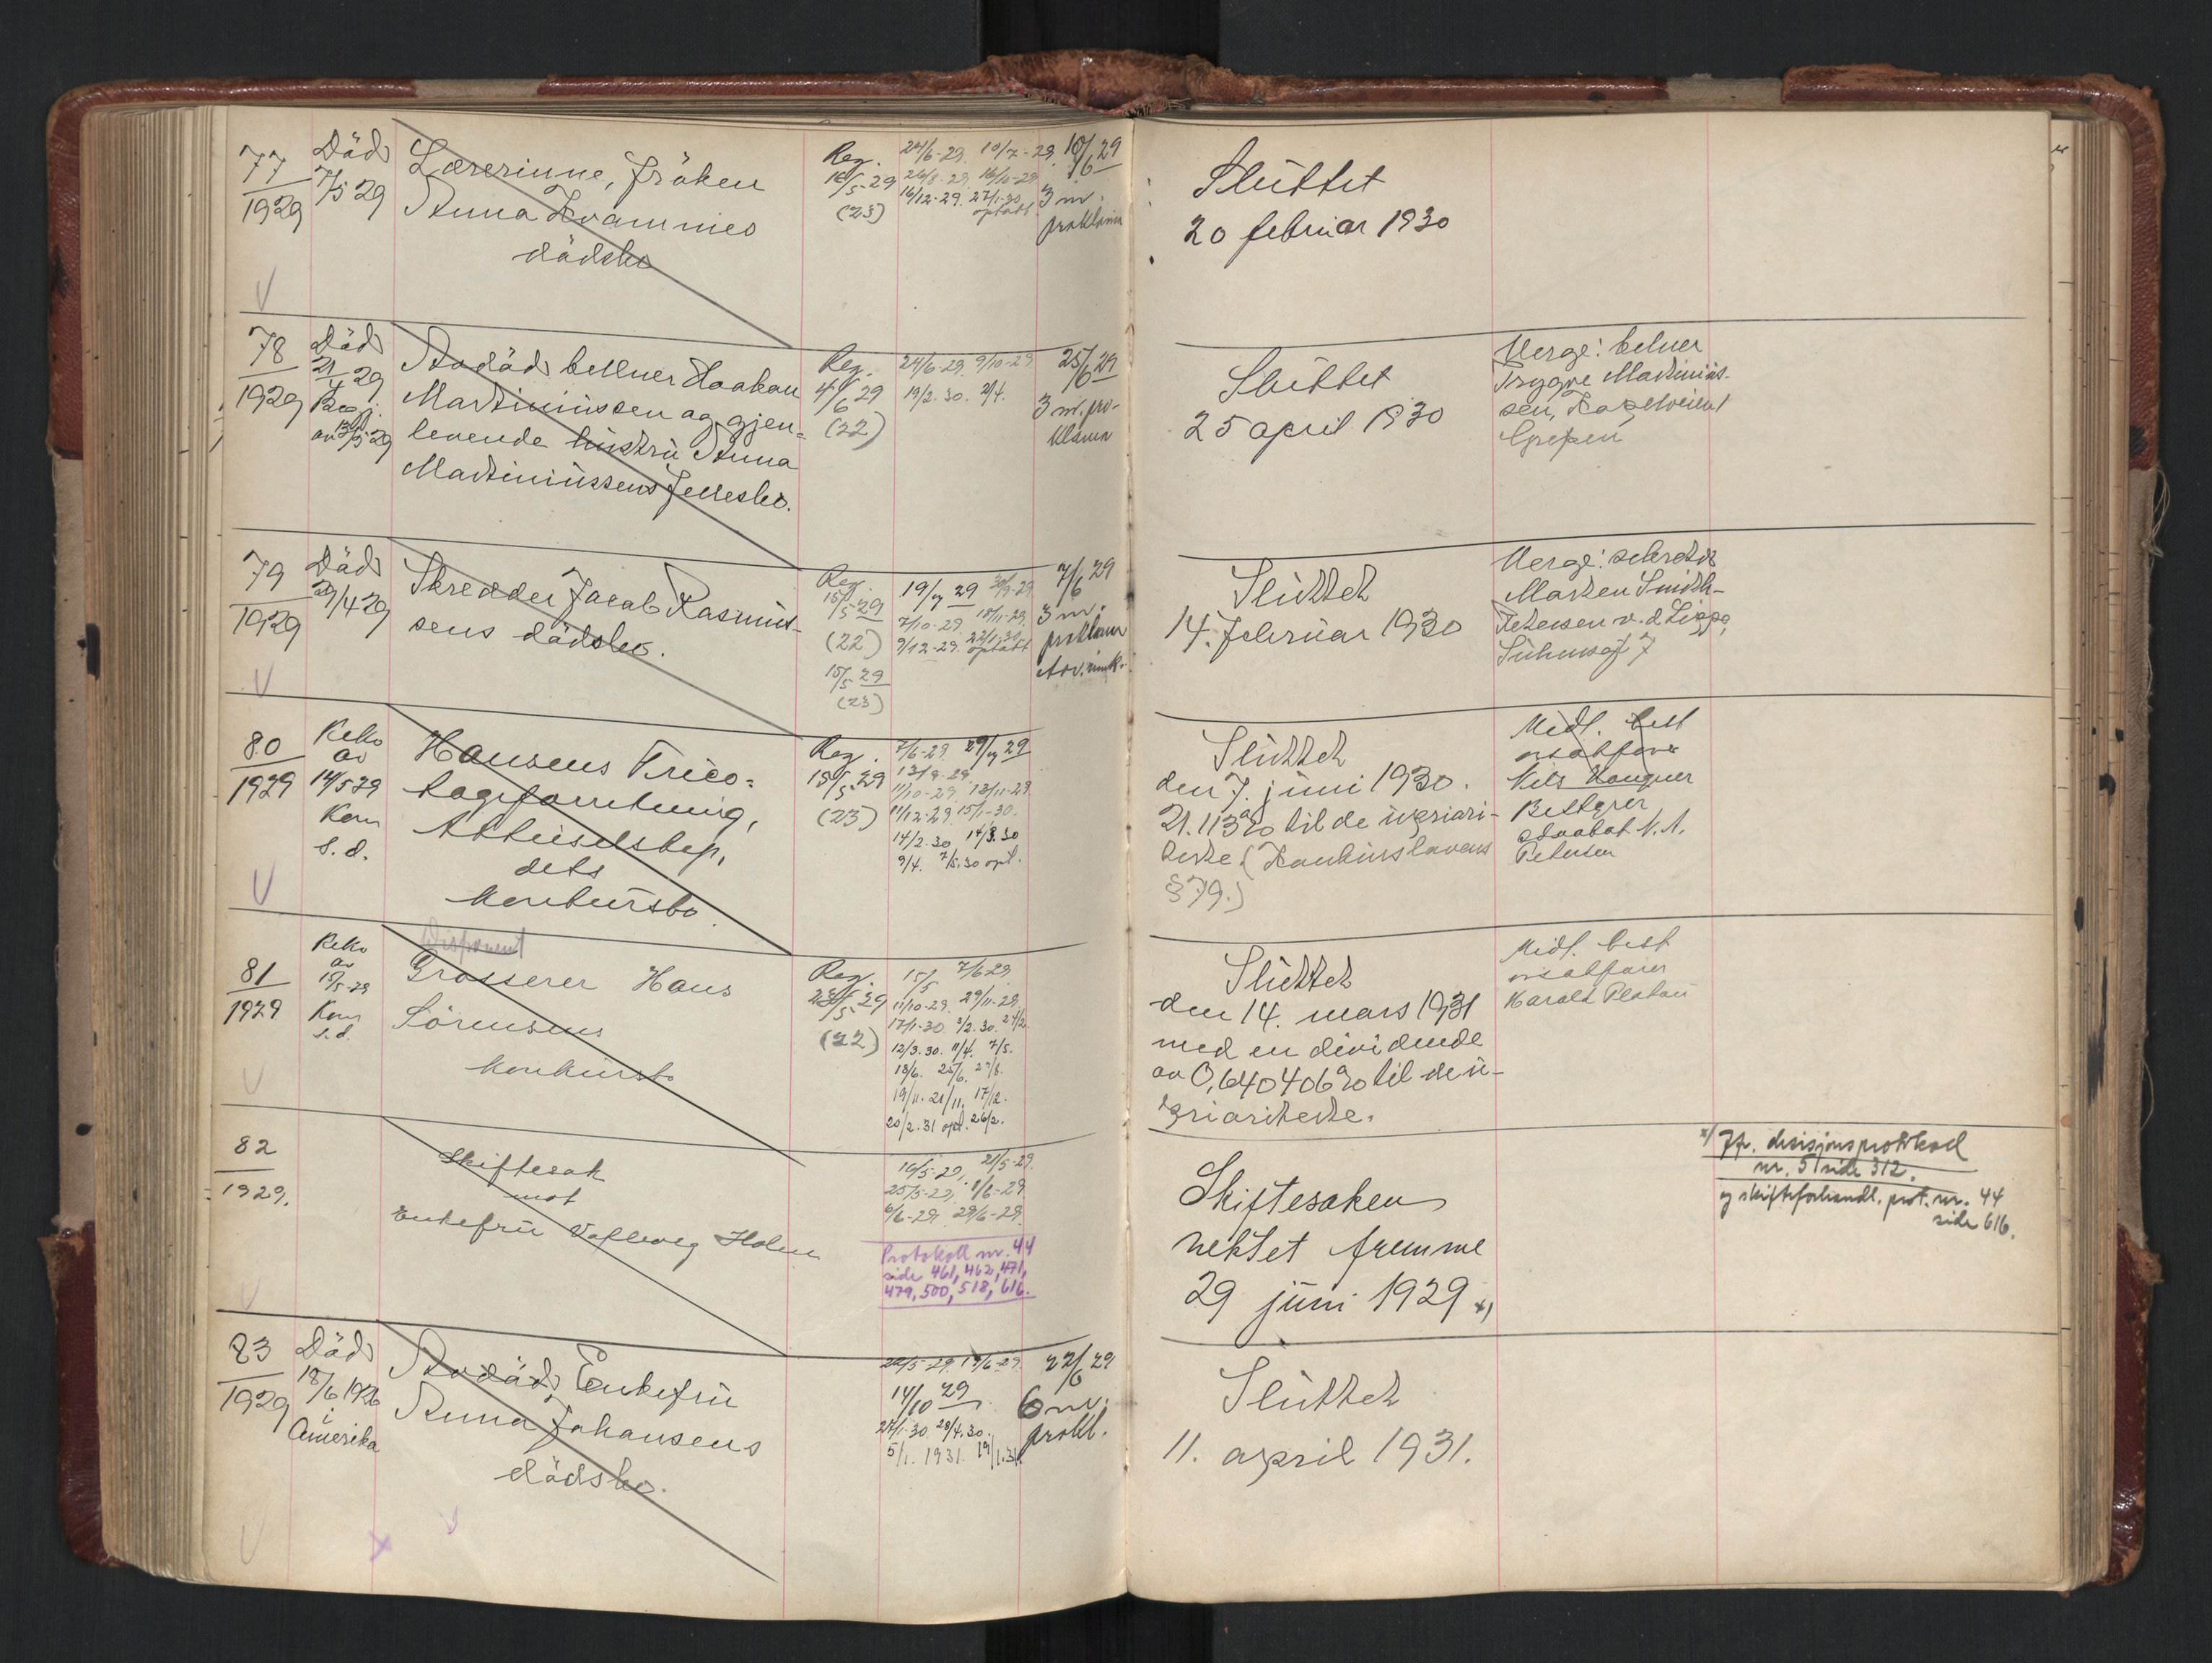 77
1929
Död
7/5 29
Lærerinne, fröken
Anna Kvammes
dödsbo
Reg.
16/5-29
(23)
24/6-29. 10/7-29.
26/8-29. 16/10-29
16/12-29. 27/1-30
optatt
10/6 29
3 m.
proklama
Sluttet
20 februar 1930
78
1929
Död
21/4 29
Begj.
av 13/5 29
Avdöd kellner Haakon
Martiniussen og gjen-
levende hustru Anna
Martiniussens fellesbo.
Reg.
4/6 29
(22)
24/6-29. 9/10-29
19/2. 30. 2/4.
25/6 29
3 m. pro-
klama
Sluttet
25 april 1930
Verge: kelner
Trygve Martinius-
sen,
79
1929
Död
29/4 29
Skredder Jacob Rasmus-
sens dödsbo.
Reg.
15/5-29
(22)
15/5 29
(23)
19/7 29 30/9-29
7/10-29. 18/11-29.
9/12-29. 22/1.30.
optatt
7/6 29
3 m.
proklama
Sluttet
14. februar 1930
Verge: sekretær
Morten Smith-
Petersen v. d. Lippe,
Suhmsgt 7
80
1929
Keko
av
14/5 29
Kom
s. d.
Hansens Trico-
tageforretning,
Aktieselskap,
dets
konkursbo.
Reg.
15/5-29
(23)
7/6-29. 29/7 29
13/9-29.
11/10-29. 13/11-29
11/12-29. 15/1-30.
14/2.30 14/3.30
9/4. 7/5.30 opt.
Sluttet
den 7. juni 1930.
21.113% til de upriori-
terte. (Konkurslovens
§ 79.)
Midl. best
orsakfører
Nils Vaugner
Bestyrer
advokat N. A.
Petersen
81
1929
Keko
av
15/5-29
Kom
s.d.
Disponent
Grosserer Hans
Sörensens
konkursbo
Reg.
23/5 29
(22)
15/5 7/6 29
11/10-29. 29/11-29.
17/1-30. 3/2.30. 24/2
12/3.30. 11/4. 7/5.
13/6. 25/6. 27/8.
19/11. 21/11. 17/12.
20/2.31 opt. 26/2.
Sluttet
den 14. mars 1931
med en dividende
av 0,640406% til de u-
prioriterte.
Midl. best
orsakfører
Harald Platou
82
1929.
Skiftesak
mot
Enkefru Valborg Holm
16/5-29, 21/5-29.
25/5-29, 1/6-29
6/6-29 29/6-29.
Protokoll nr. 44
side 461, 462, 471,
479, 500, 518, 616.
Skiftesaken
nektet fremme
29 juni 1929 x)
x) Jfr. decisjonsprotokoll
nr. 5 side 312.
og skifteforhandl. prot. nr. 44
side 616.
83
1929
Död
18/6 1926
i
Amerika
Avdöd Enkefru
Anna Johansens
dödsbo.
22/5-29. 19/6-29.
14/10 29
27/1-30 28/4.30.
5/1. 1931. 19/1.31.
22/6 29
6 m.
prokl.
Sluttet
11. april 1931.